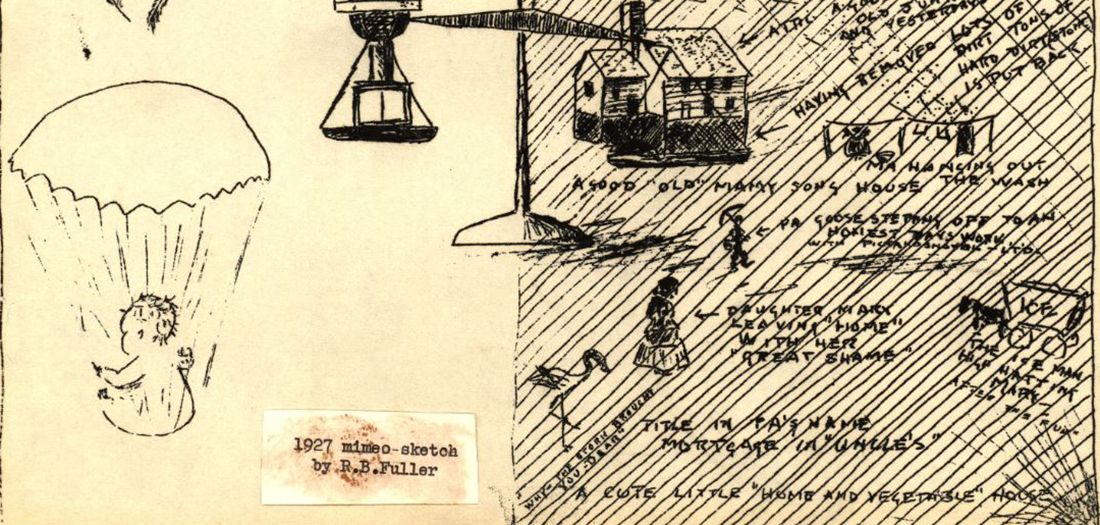 ATTIC A GOOD
OLD JUNK
AND YESTERDAYS
HAVING REMOVED LOTS OF
DIRT TONS OF
HARD DIRTSTONE
IS PUT BACK
MA HANGING OUT
THE WASH
A GOOD "OLD" MAMY SONG HOUSE
PA GOOSE STEPPING OFF TO AN
HONEST DAYS WORK
WITH
DAUGHTER MARY
LEAVING "HOME"
WITH HER
"GREAT SHAME"
ICE
THE ICE MAN
HIGH HATTING
MARY
AFTER THE
"WHY-THE STORK BROUGHT
YOU-DEAR"
TITLE IN PA'S NAME
MORTGAGE IN "UNCLE'S"
A CUTE LITTLE "HOME AND VEGETABLE" HOUSE
1927 mimeo-sketch
by R.B.Fuller